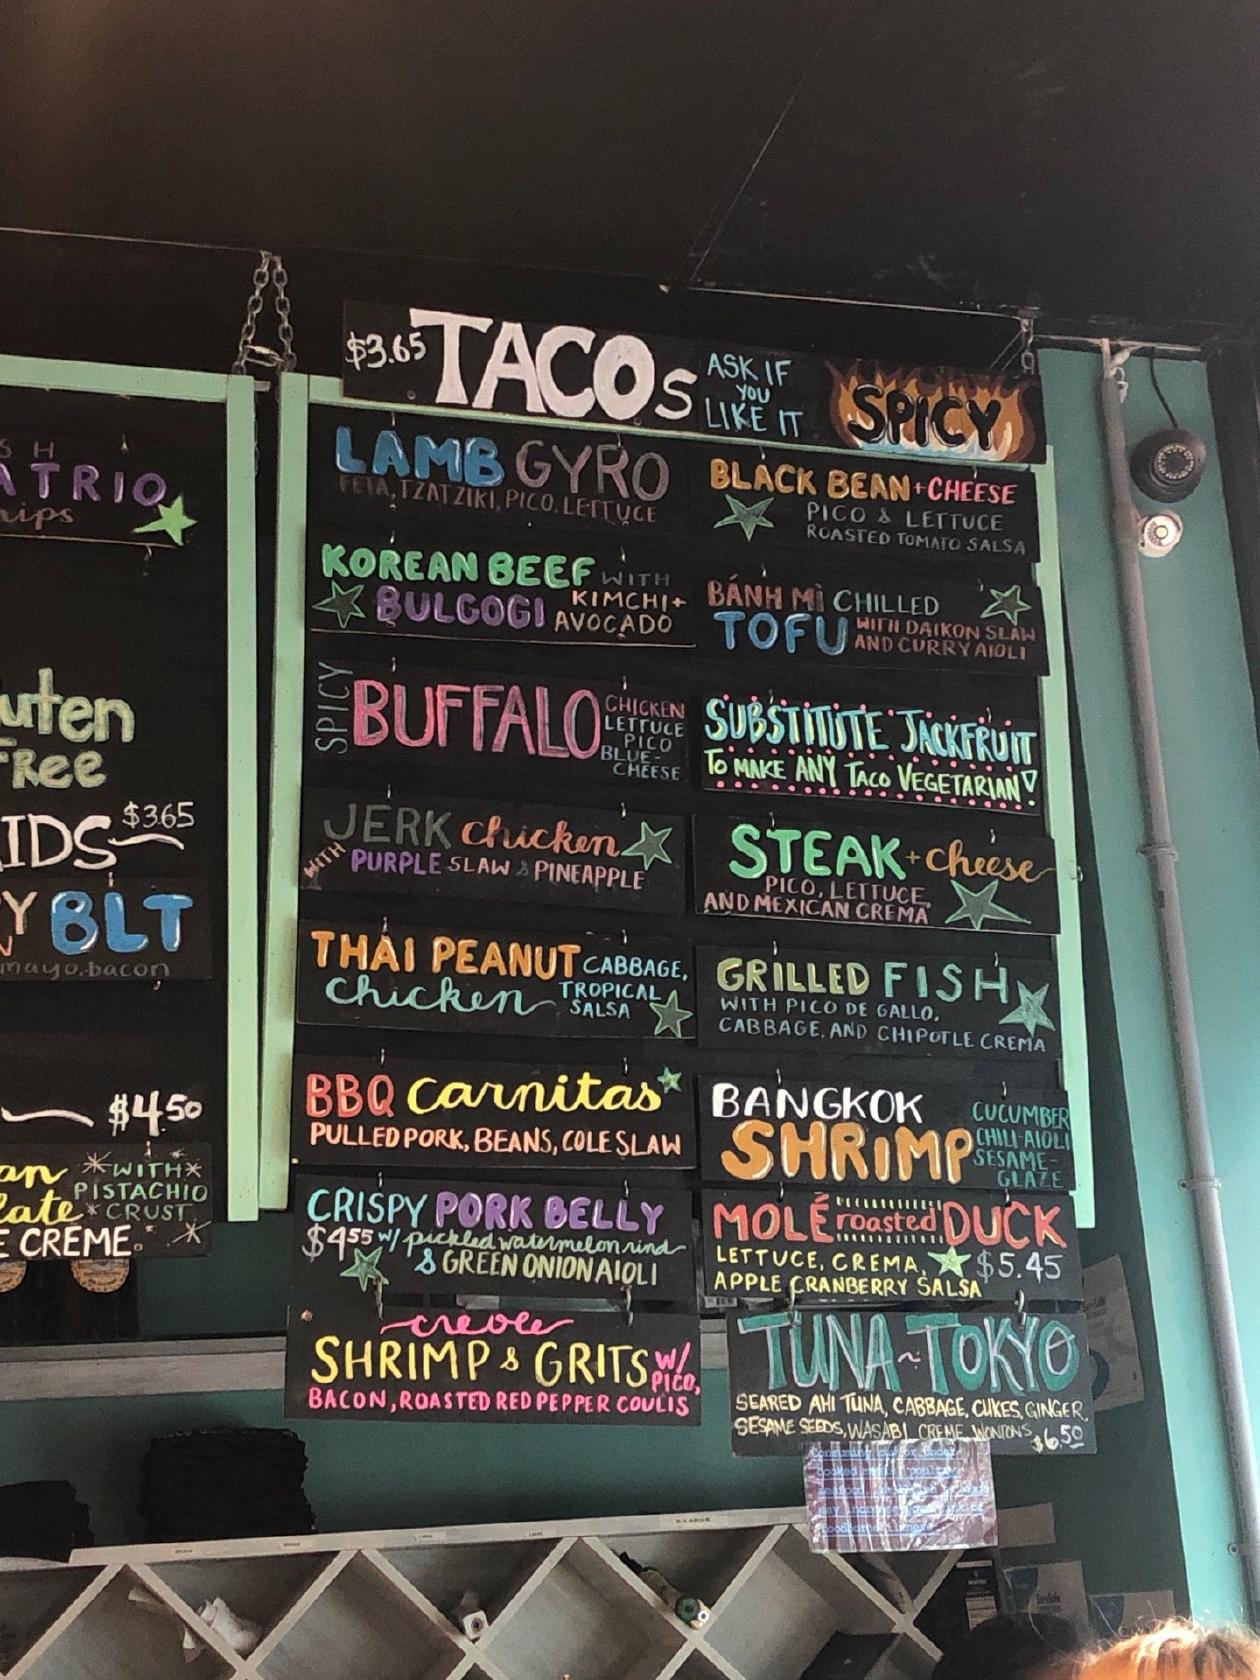 SH
ATRIO
hips
uten
Free
IDS $3.65
Y BLT
mayo, bacon
$4.50
an WITH
late PISTACHIO
CRUST
E CREME.
$3.65 TACOS ASK IF YOU LIKE IT SPICY
LAMB GYRO
FETA, TZATZIKI, PICO, LETTUCE
KOREAN BEEF WITH
BULGOGI KIMCHI +
AVOCADO
SPICY BUFFALO CHICKEN
LETTUCE
PICO
BLUE-
CHEESE
JERK chicken
WITH PURPLE SLAW & PINEAPPLE
THAI PEANUT CABBAGE,
chicken TROPICAL
SALSA
BBQ carnitas
PULLED PORK, BEANS, COLESLAW
CRISPY PORK BELLY
$4.55 w/ pickled watermelon rind
& GREEN ONION AIOLI
creole
SHRIMP & GRITS W/
PICO,
BACON, ROASTED RED PEPPER COULIS
BLACK BEAN + CHEESE
PICO & LETTUCE
ROASTED TOMATO SALSA
BÁNH MÌ CHILLED
TOFU WITH DAIKON SLAW
AND CURRY AIOLI
SUBSTITUTE JACKFRUIT
TO MAKE ANY TACO VEGETARIAN!
STEAK + cheese
PICO, LETTUCE,
AND MEXICAN CREMA
GRILLED FISH
WITH PICO DE GALLO,
CABBAGE, AND CHIPOTLE CREMA
BANGKOK
SHRIMP
CUCUMBER
CHILI-AIOLI
SESAME-
GLAZE
MOLÉ roasted DUCK
LETTUCE, CREMA, $5.45
APPLE CRANBERRY SALSA
TUNA~TOKYO
SEARED AHI TUNA, CABBAGE, CUKES, GINGER,
SESAME SEEDS, WASABI CREME, WONTONS $6.50
X-LARGE